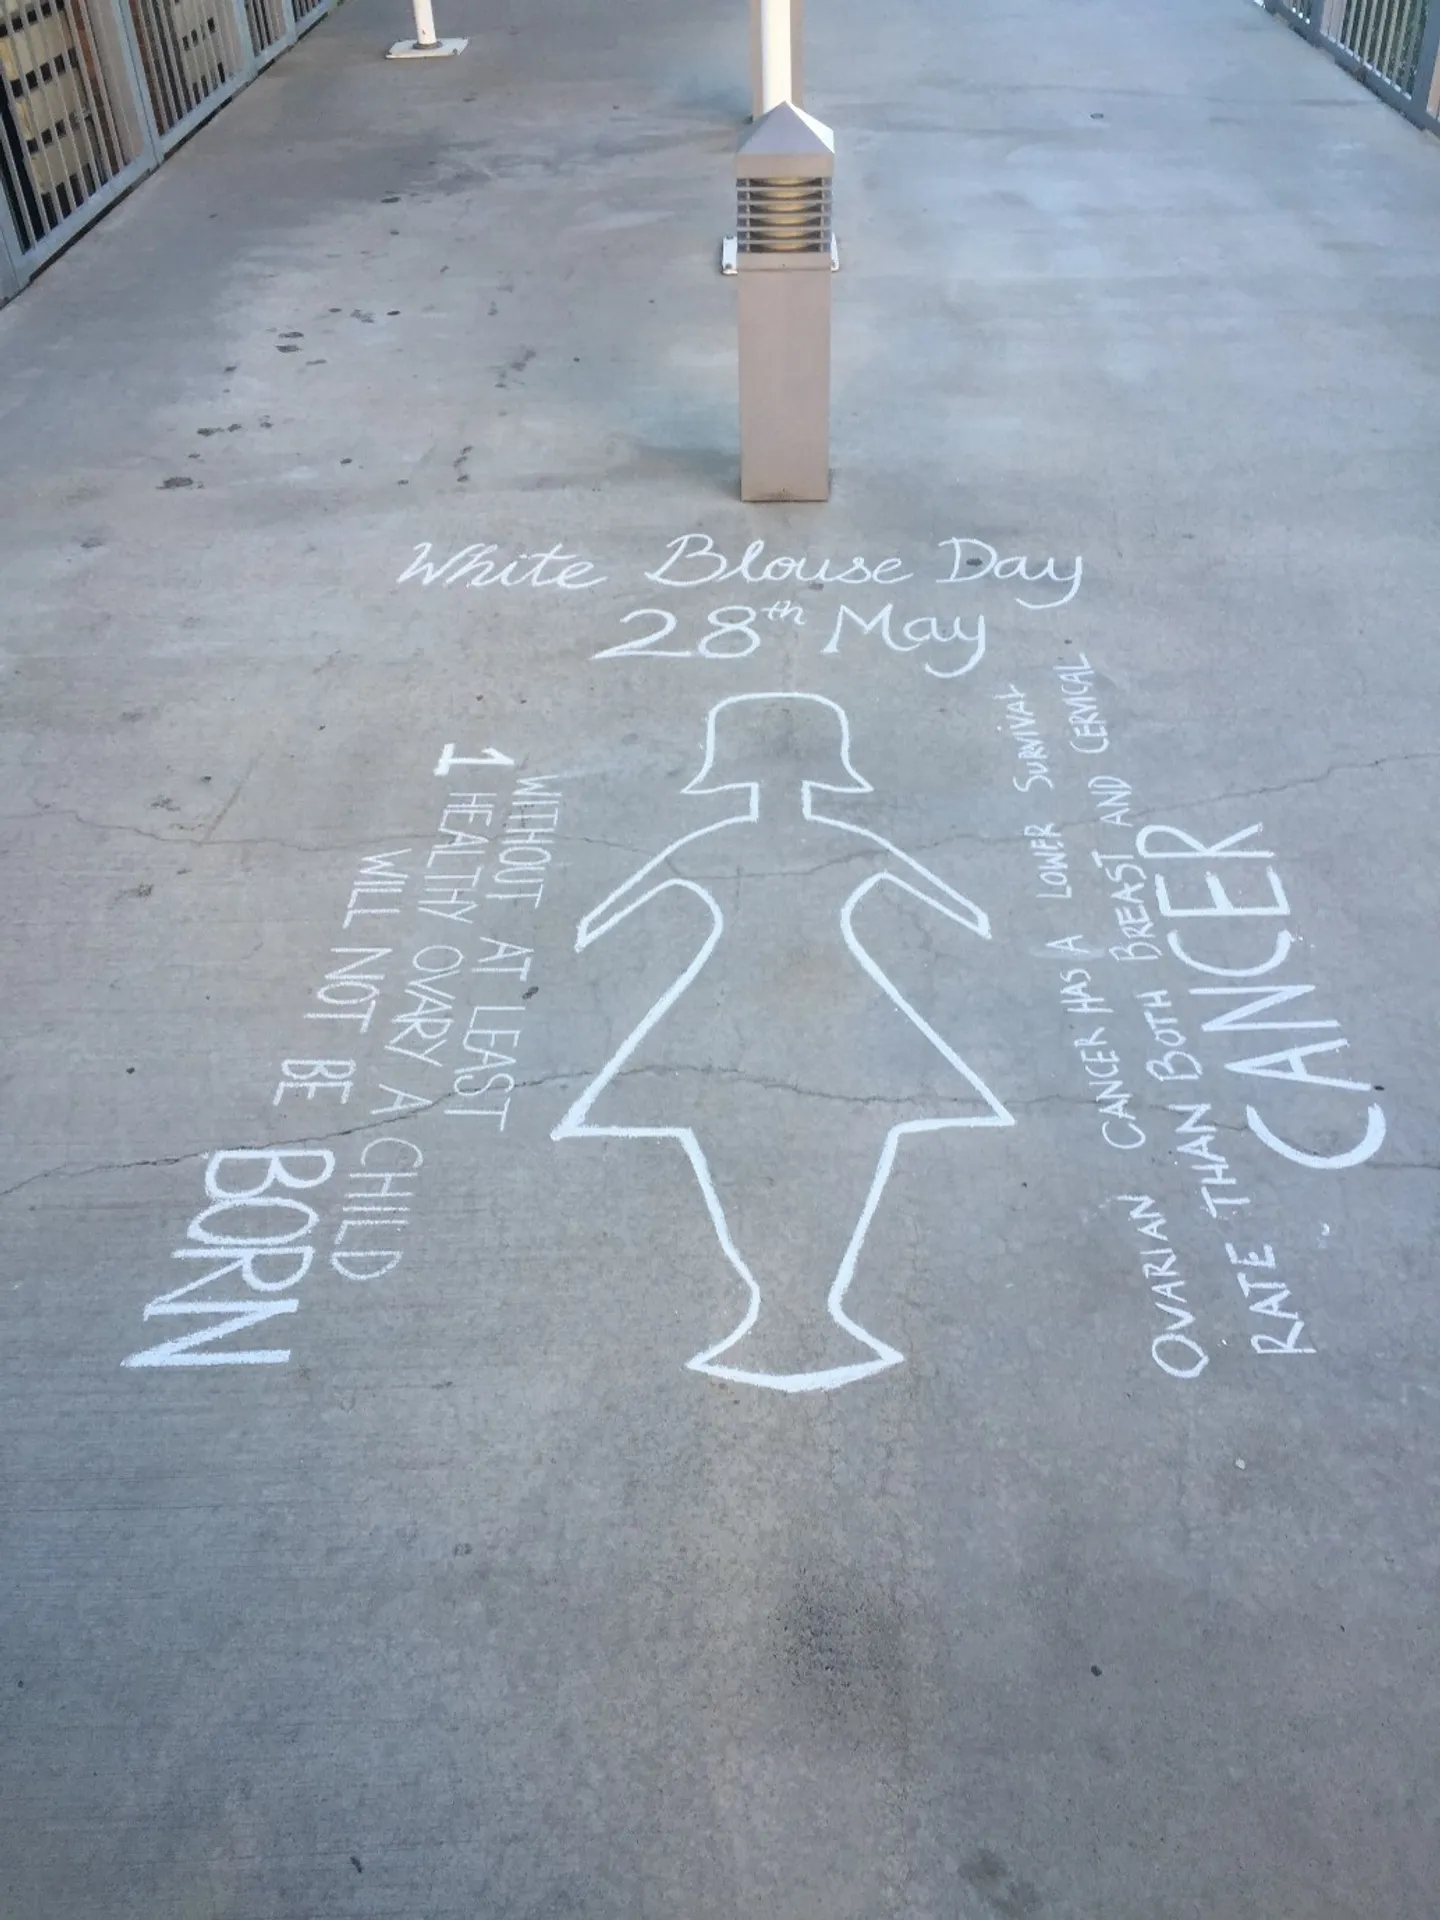 White Blouse Day
28th May
WITHOUT AT LEAST
1 HEALTHY OVARY A CHILD
WILL NOT BE BORN
OVARIAN CANCER HAS A LOWER SURVIVAL
RATE THAN BOTH BREAST AND CERVICAL
CANCER